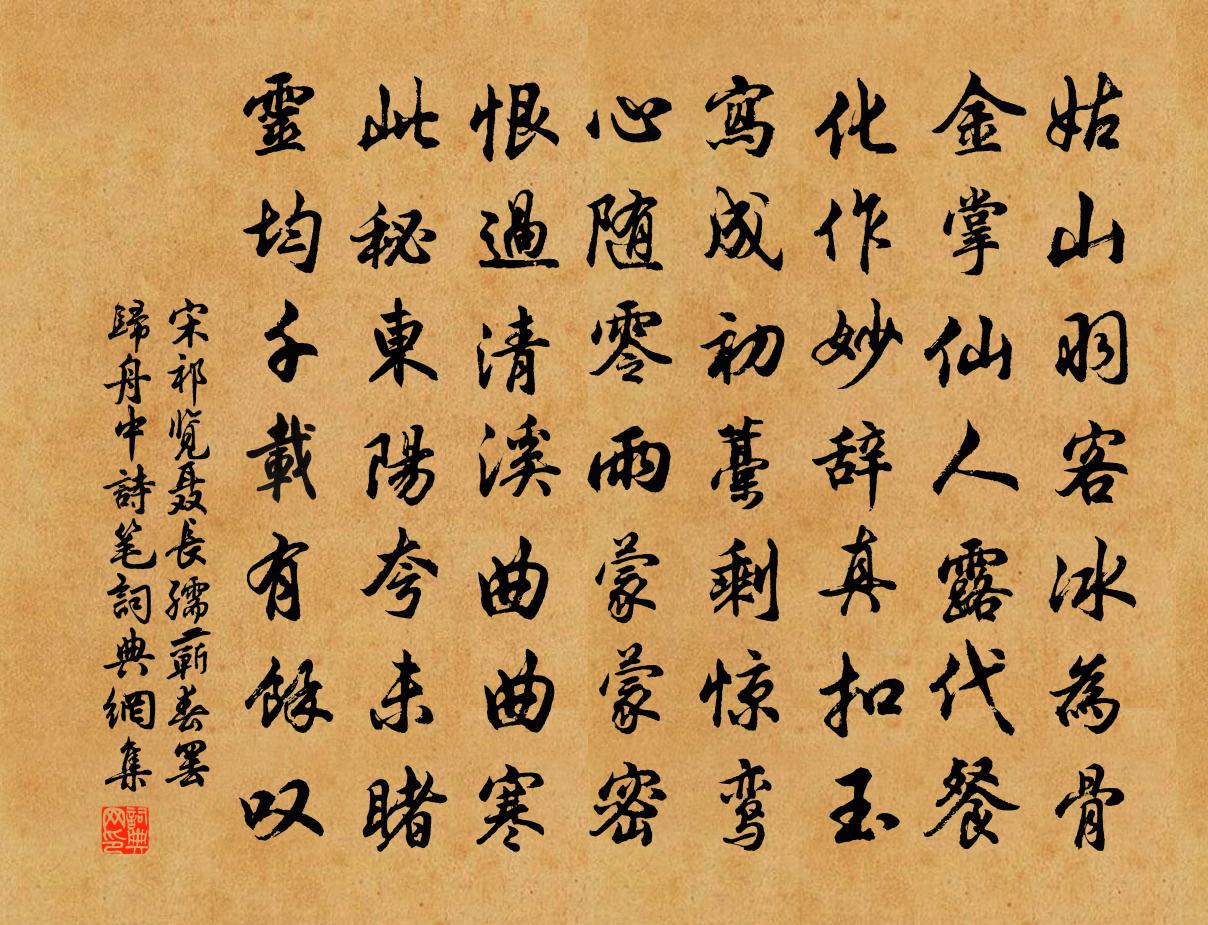 姑山羽客冰為骨
金掌仙人露代餐
化作妙辞真扣玉
寫成初藁剩惊鸾
心随零雨蒙蒙密
恨過清溪曲曲寒
此秘東陽夸未睹
靈均千載有餘叹
宋祁览聂長孺蕲春罢
歸舟中詩笔詞典網集
詞典网印